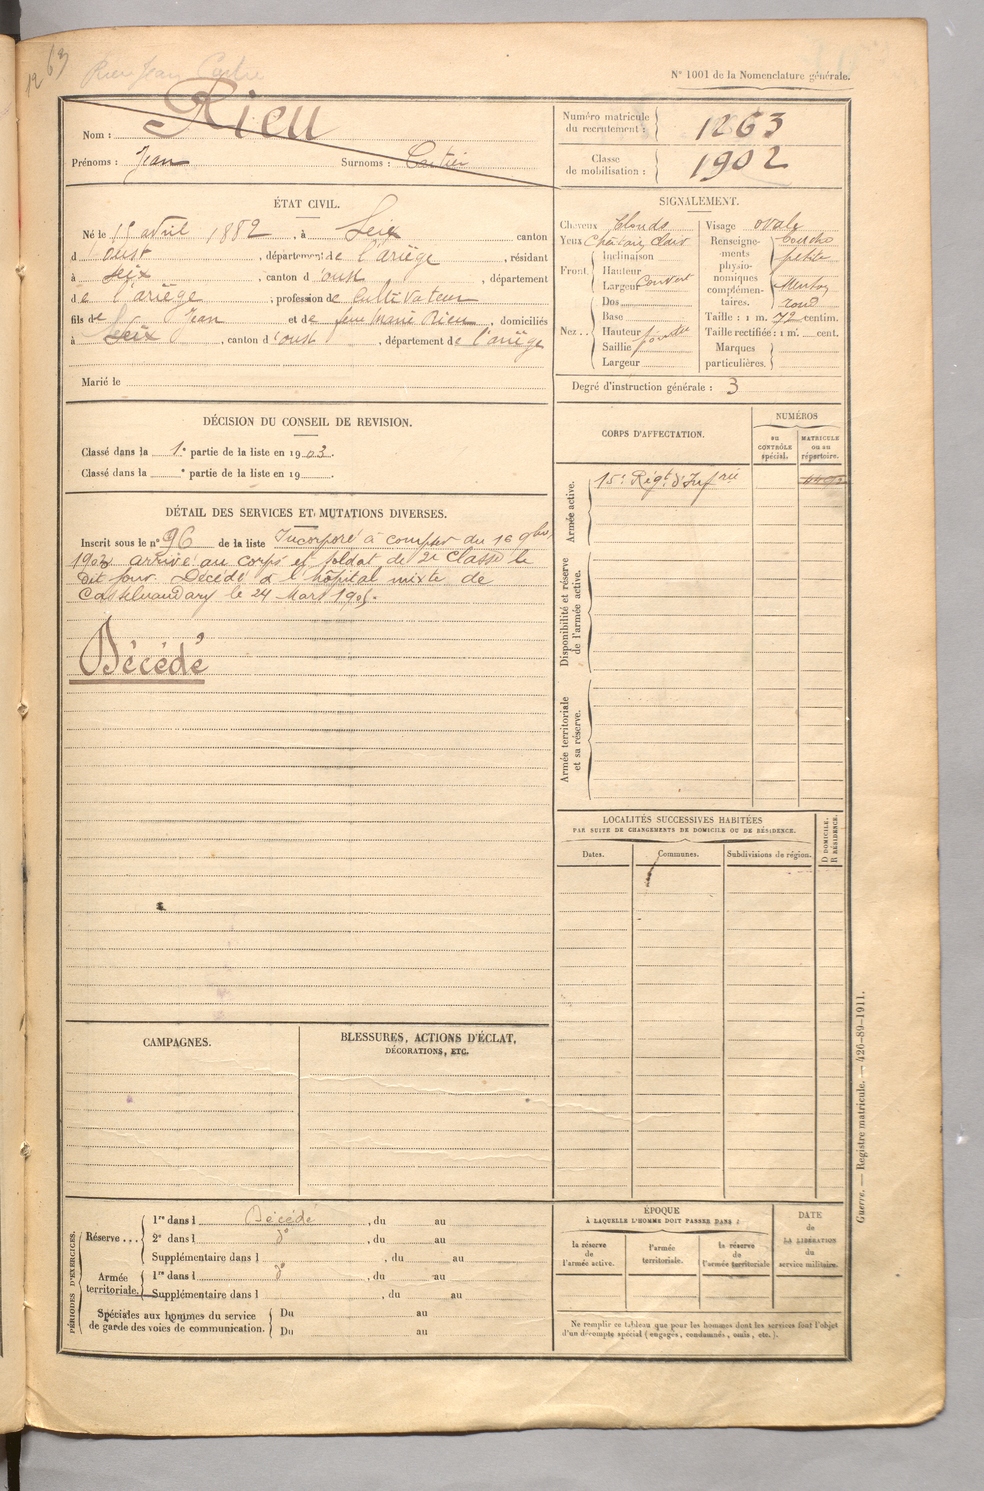 1263
Rieu Jean
N° 1001 de la Nomenclature générale.
Nom : Rieu
Prénoms : Jean Surnoms :
Numéro matricule du recrutement : 1263
Classe de mobilisation : 1902
ÉTAT CIVIL.
Né le 15 avril 1882, à Seix canton
d'Oust, département de l'ariège, résidant
à Seix, canton d'oust, département
de l'ariège, profession de Cultivateur
fils de Jean et de feue Marie Rieu, domiciliés
à Seix, canton d'oust, département de l'ariège
Marié le
SIGNALEMENT.
Cheveux blonds
Yeux Châtain clair
Front. Inclinaison
Hauteur
Largeur Couvert
Nez... Dos
Base
Hauteur
Saillie
Largeur
Visage ovale
Renseignements physionomiques complémentaires. bouche petite Menton rond
Taille : 1 m. 72 centim.
Taille rectifiée : 1 m. cent.
Marques particulières.
Degré d'instruction générale : 3
DÉCISION DU CONSEIL DE REVISION.
Classé dans la 1e partie de la liste en 1903.
Classé dans la e partie de la liste en 19
CORPS D'AFFECTATION.
NUMÉROS
au CONTRÔLE spécial.
MATRICULE ou au répertoire.
Armée active.
15e Régt d'Infrie
Disponibilité et réserve de l'armée active.
Armée territoriale et sa réserve.
DÉTAIL DES SERVICES ET MUTATIONS DIVERSES.
Inscrit sous le n° 96 de la liste Incorporé à compter du 16 9bre
1903 arrivé au corps et soldat de 2e classe le
dit jour. Décédé à l'hôpital mixte de
Castelnaudary le 24 Mars 1905.
Décédé
LOCALITÉS SUCCESSIVES HABITÉES
PAR SUITE DE CHANGEMENTS DE DOMICILE OU DE RÉSIDENCE.
Dates.
Communes.
Subdivisions de région.
D DOMICILE.
R RÉSIDENCE.
CAMPAGNES.
BLESSURES, ACTIONS D'ÉCLAT,
DÉCORATIONS, ETC.
PÉRIODES D'EXERCICES.
Réserve... 1re dans l Décédé, du au
2e dans l do, du au
Supplémentaire dans l, du au
Armée territoriale. 1re dans l do, du au
Supplémentaire dans l, du au
Spéciales aux hommes du service de garde des voies de communication. Du au
Du au
ÉPOQUE
À LAQUELLE L'HOMME DOIT PASSER DANS :
la réserve de l'armée active.
l'armée territoriale.
la réserve de l'armée territoriale
DATE de LA LIBÉRATION du service militaire.
Ne remplir ce tableau que pour les hommes dont les services font l'objet
d'un décompte spécial (engagés, condamnés, omis, etc.).
Guerre. — Registre matricule. — 426-89-1911.